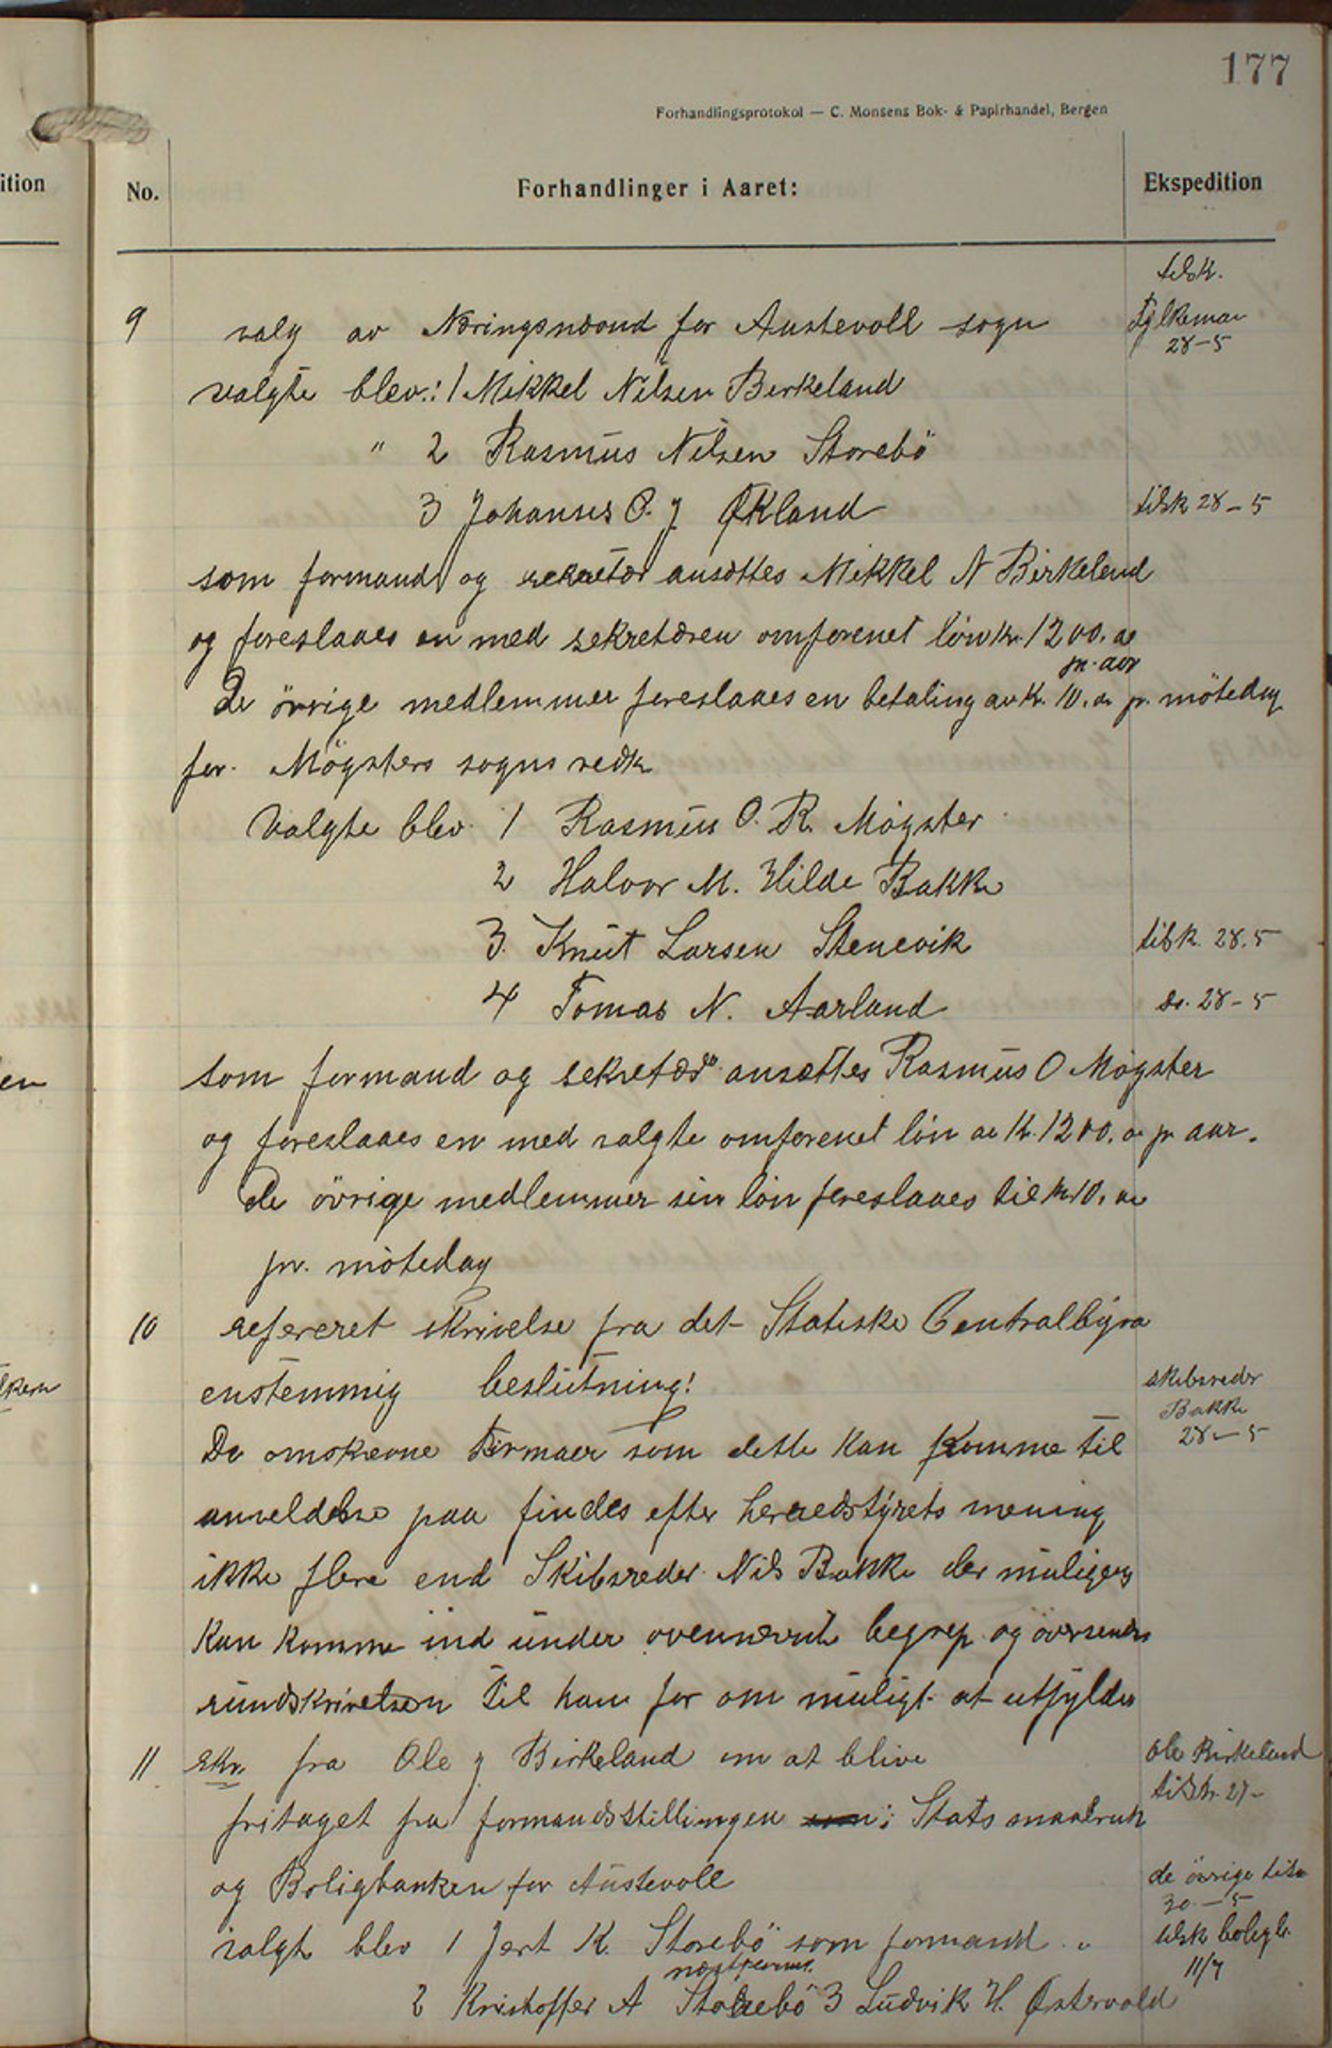 177
Forhandlingsprotokol — C. Monsens Bok- & Papirhandel, Bergen
ition
No.
Forhandlinger i Aaret:
Ekspedition
tilsk.
Fylkeman
28-5
9 valg av Næringsnævnd for Austevoll sogn
valgte blev: 1 Mikkel Nilsen Birkeland
" 2 Rasmus Nilsen Storebö
3 Johannes O. J. Økland
tilsk 28-5
som formand og sekretær ansættes Mikkel N Birkeland
og foreslaaes en med sekretæren omforenet lön kr. 1200.
pr. aar
De övrige medlemmer foreslaaes en betaling av kr. 10. pr. mötedag
for Mögsters sogns vedk
Valgte blev 1 Rasmus O. R. Mögster
2 Halvor M. Hilde Bakke
3. Knut Larsen Stenevik
tilsk. 28.5
4 Tomas N. Aarland
do. 28-5
som formand og sekretær ansættes Rasmus O Mögster
og foreslaaes en med valgte omforenet lön av Kr. 1200. pr aar.
De övrige medlemmer sin lön foreslaaes til kr 10.
pr. mötedag
10 referert skrivelse fra det Statiske Centralbyra
enstemmig beslutning!
skibsreder
Bakke
28-5
De omskrevne Firmaer som dette kan komme til
anveldelse paa findes efter herredstyrets mening
ikke flere end Skibsreder Nils Bakke der muligens
kan komme ind under ovennevnte begrep og översendes
rundskrivelsen til ham for om muligt at utfyldes
11 skr. fra Ole J Birkeland om at blive
Ole Birkeland
tilsk. 27-
fritaget fra formandsstillingen i Stats smaabruk
og Boligbanken for Austevoll
de övrige tilsk
30-5
valgt blev 1 Jert K. Storebö som formand
tilsk boligb.
11/7
næstform.
2 Kristoffer A Storebö 3 Ludvik H. Østervold